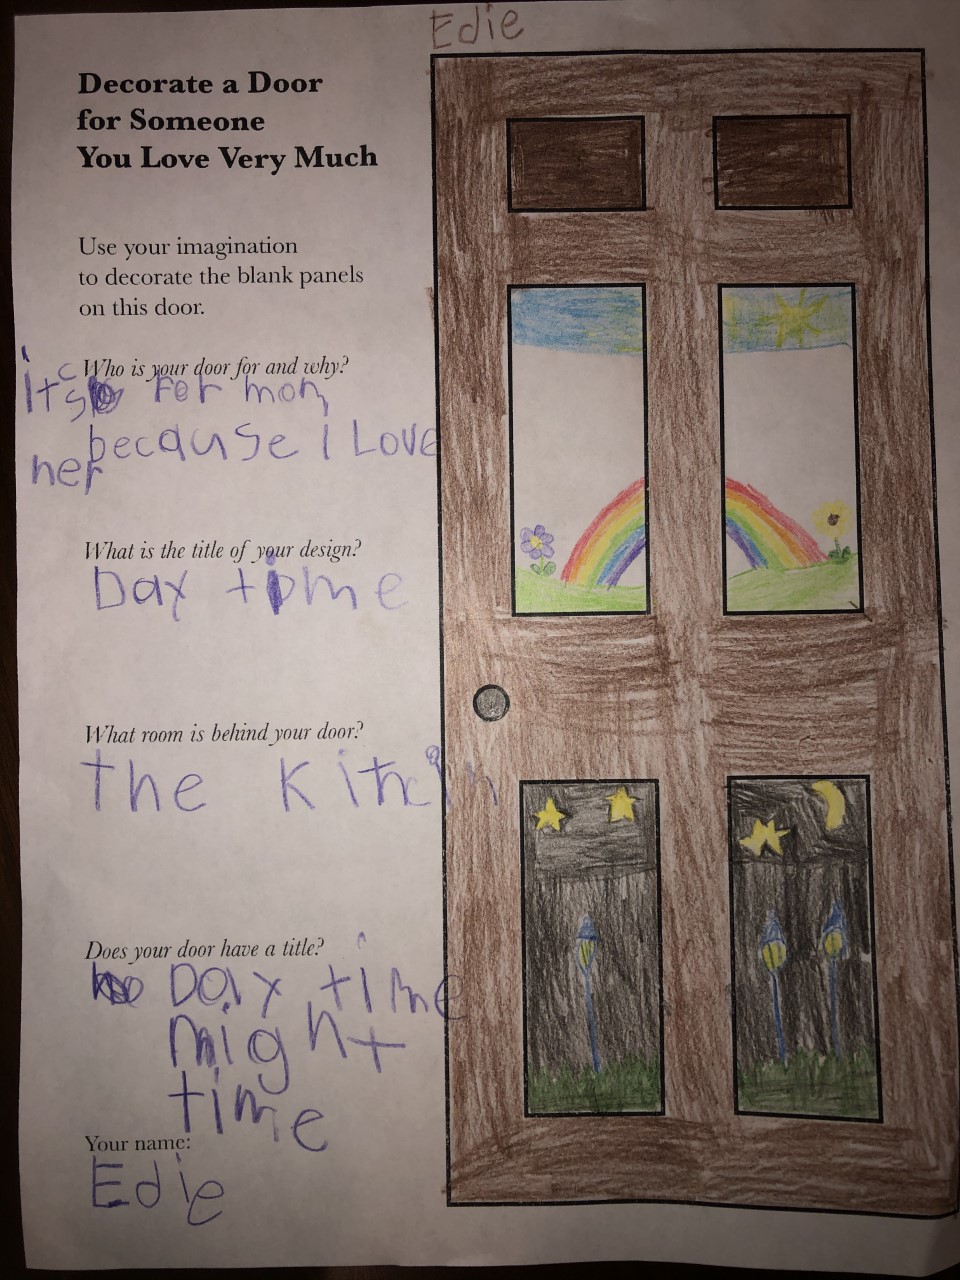 Edie
Decorate a Door
for Someone
You Love Very Much
Use your imagination
to decorate the blank panels
on this door.
Who is your door for and why?
Its for mom
because I Love
her
What is the title of your design?
Day time
What room is behind your door?
the Kitcin
Does your door have a title?
Day time
night
time
Your name:
Edie